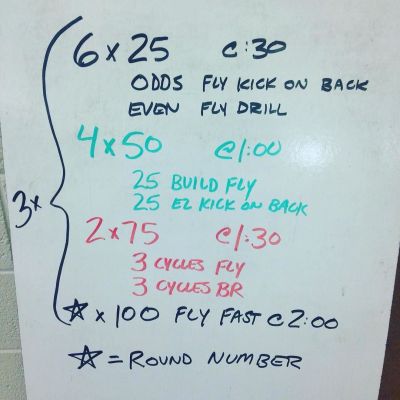 6 x 25 @ :30
ODDS FLY KICK ON BACK
EVEN FLY DRILL
4 x 50 @ 1:00
25 BUILD FLY
25 EZ KICK ON BACK
3x
2 x 75 @ 1:30
3 CYCLES FLY
3 CYCLES BR
☆ x 100 FLY FAST @ 2:00
☆ = ROUND NUMBER